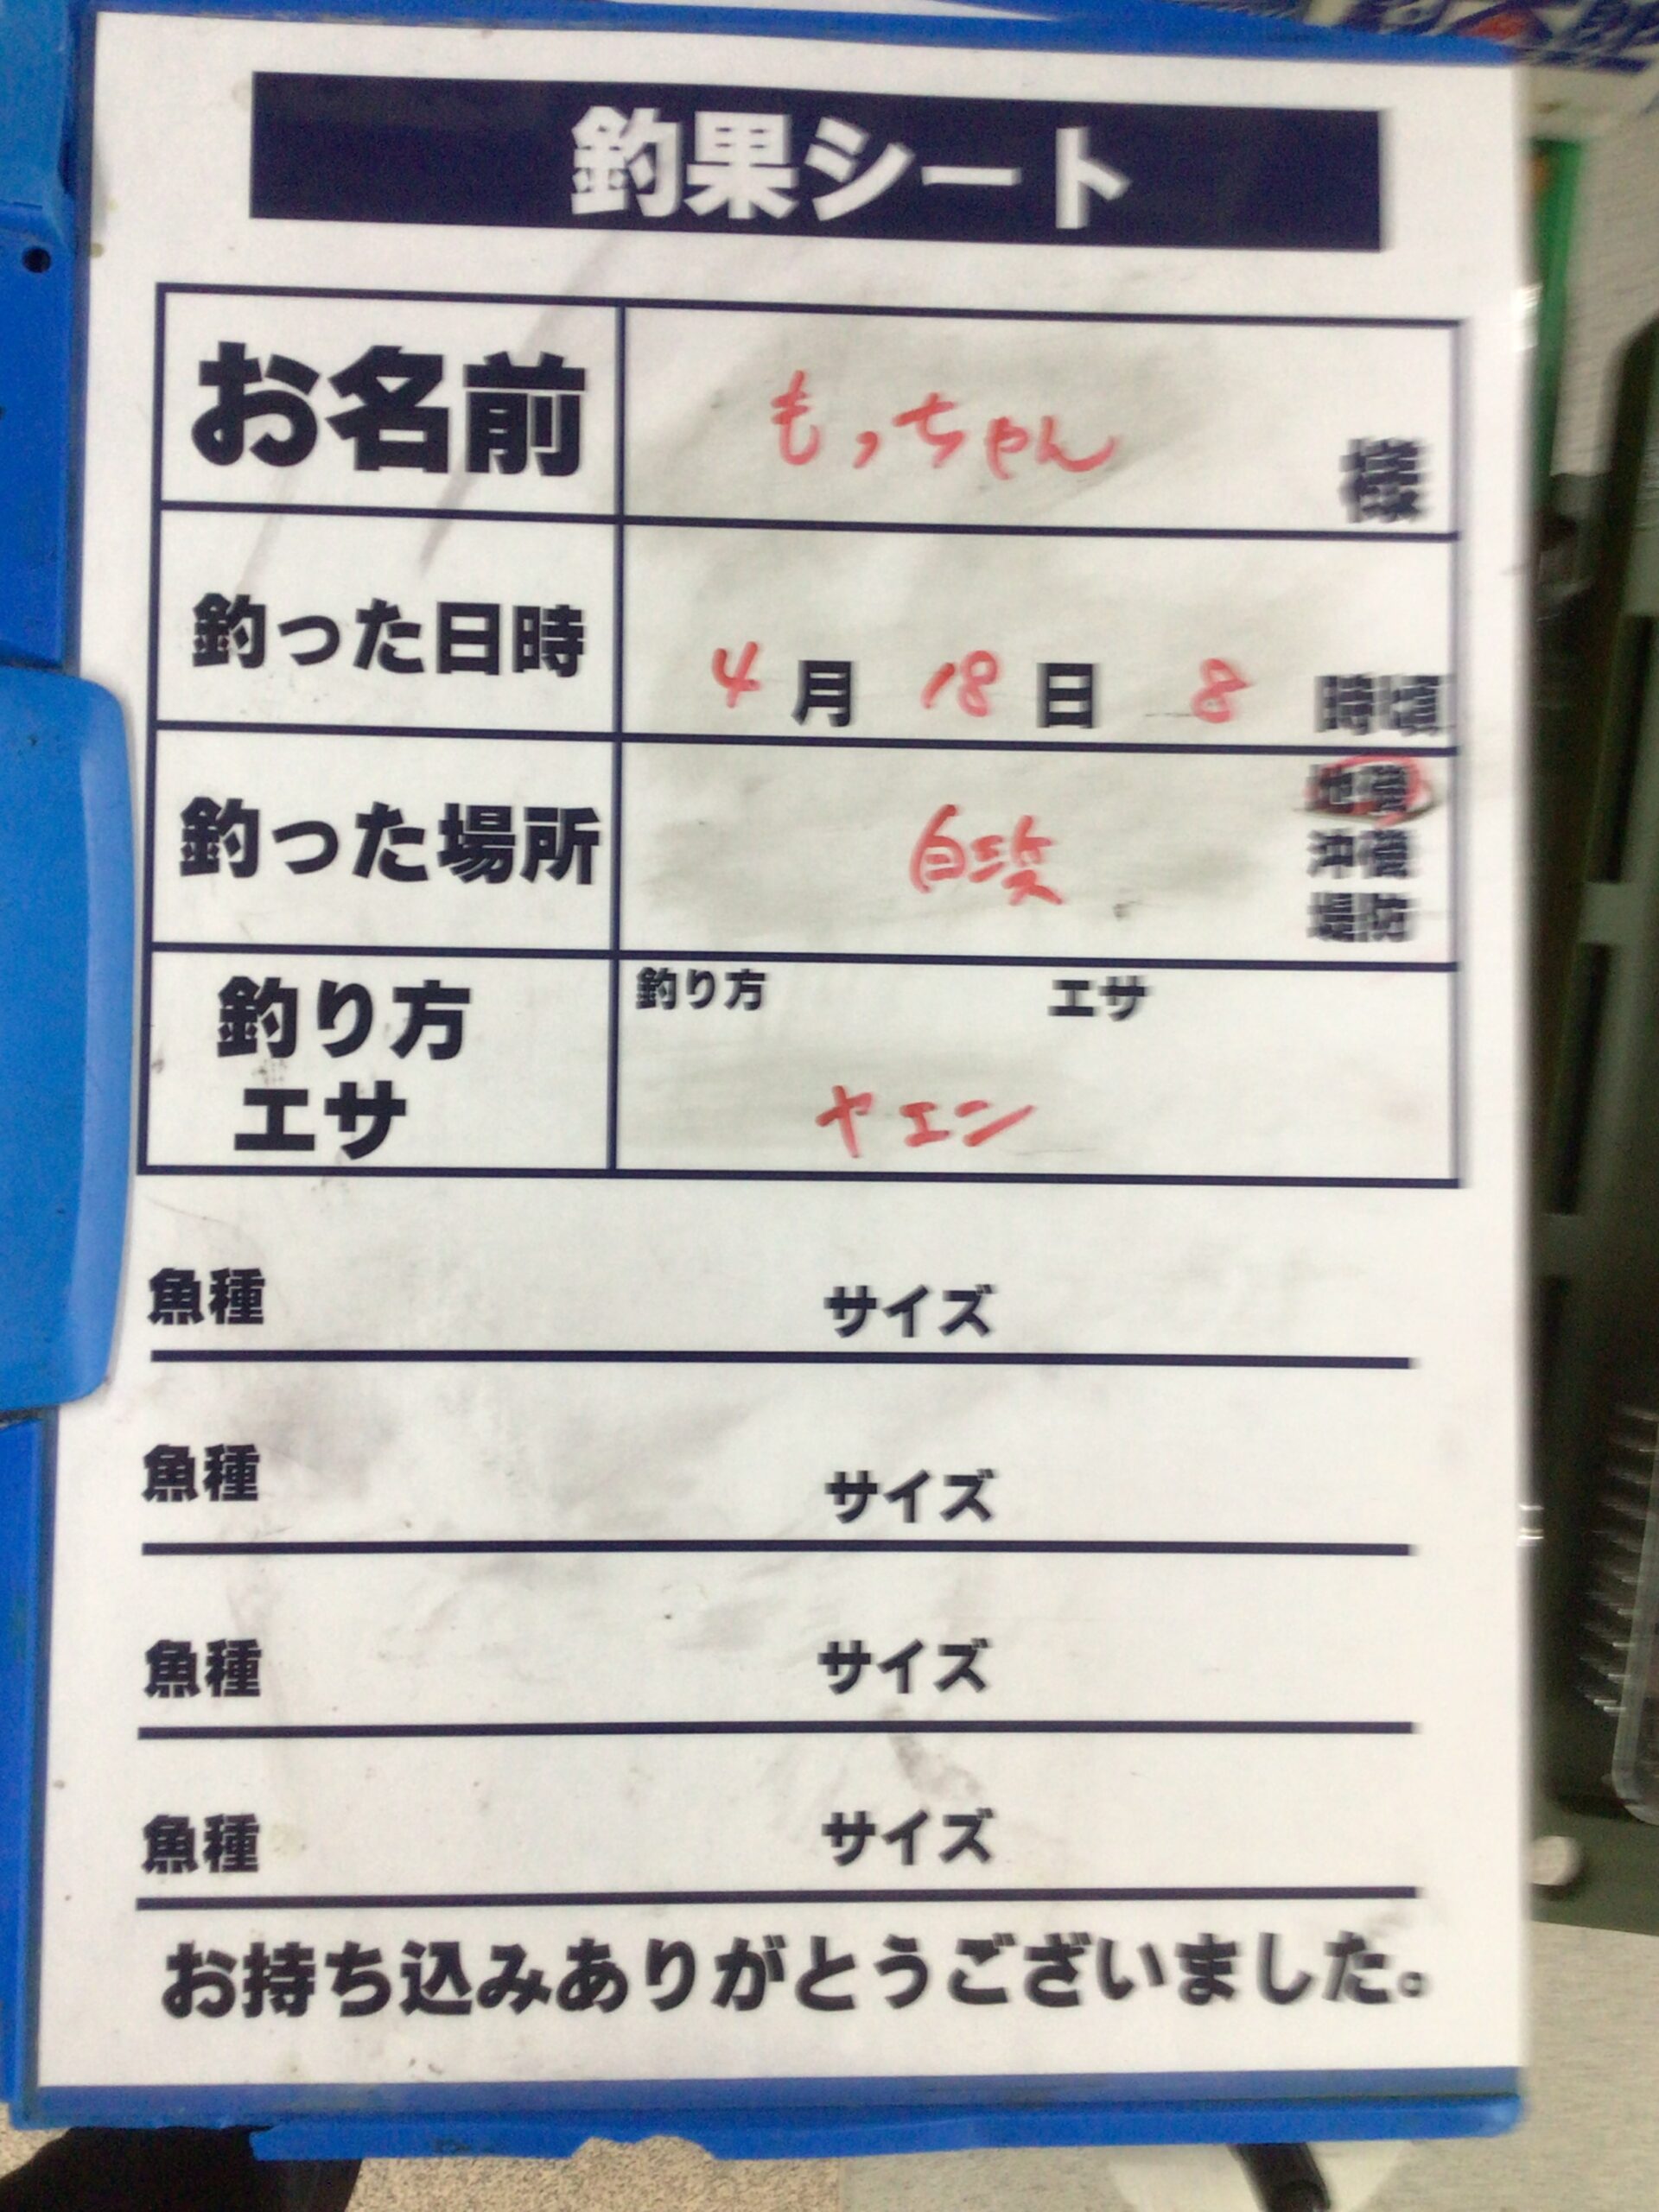 釣果シート
お名前 もっちゃん 様
釣った日時 4月18日 8時頃
釣った場所 白浜 地磯
沖磯
堤防
釣り方 エサ
釣り方
エサ
ヤエン
魚種 サイズ
魚種 サイズ
魚種 サイズ
魚種 サイズ
お持ち込みありがとうございました。